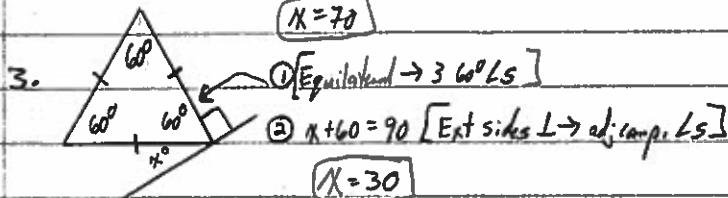 x = 70
3.
60°
60° 60°
x°
① [Equilateral → 3 60° ∠s]
② x+60 = 90 [Ext sides ⊥ → adj comp. ∠s]
x = 30